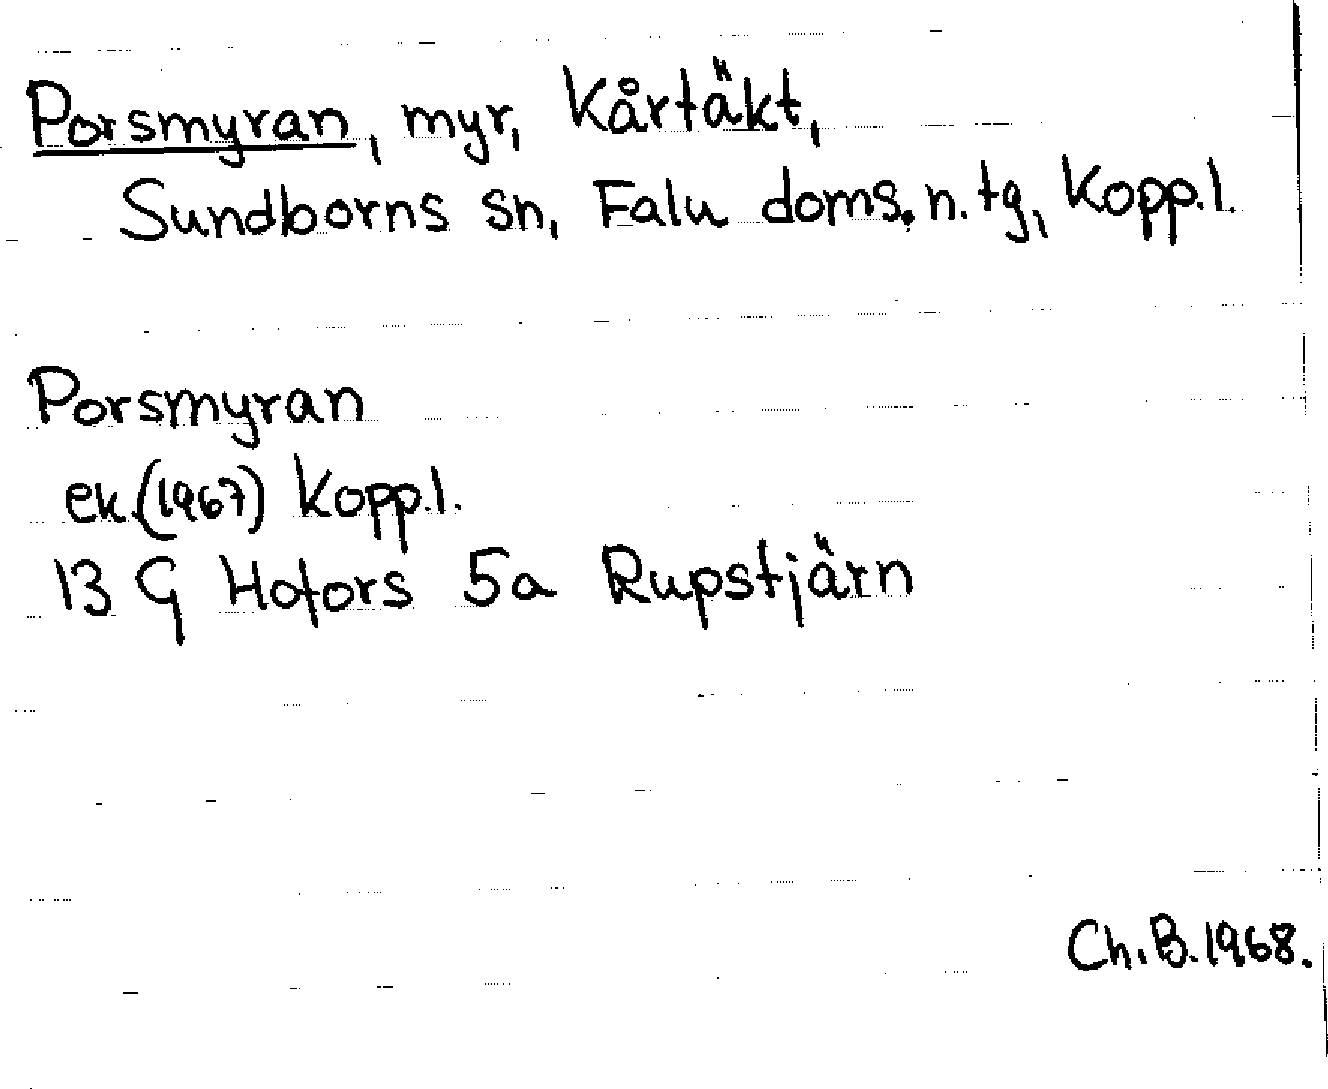 Porsmyran, myr, Kårtäkt,
Sundborns sn, Falu doms. n. tg, Kopp.l.
Porsmyran
ek.(1967) Kopp.l.
13 G Hofors 5a Rupstjärn
Ch.B.1968.